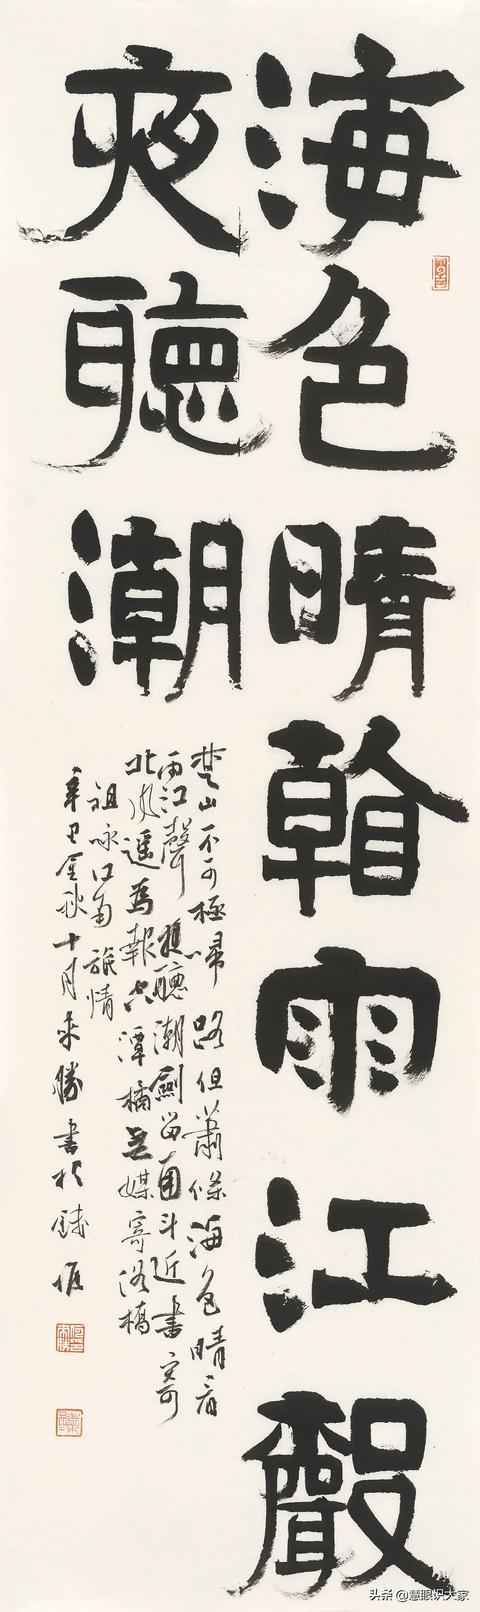 海色晴看雨江聲
夜聽潮
楚山不可極歸路但蕭條海色晴看
雨江聲夜聽潮劍留南斗近書寄
北風遥為報空潭橘無媒寄洛橋
祖詠江南旅情
辛丑金秋十月來勝書於
头条 @慧眼识大家